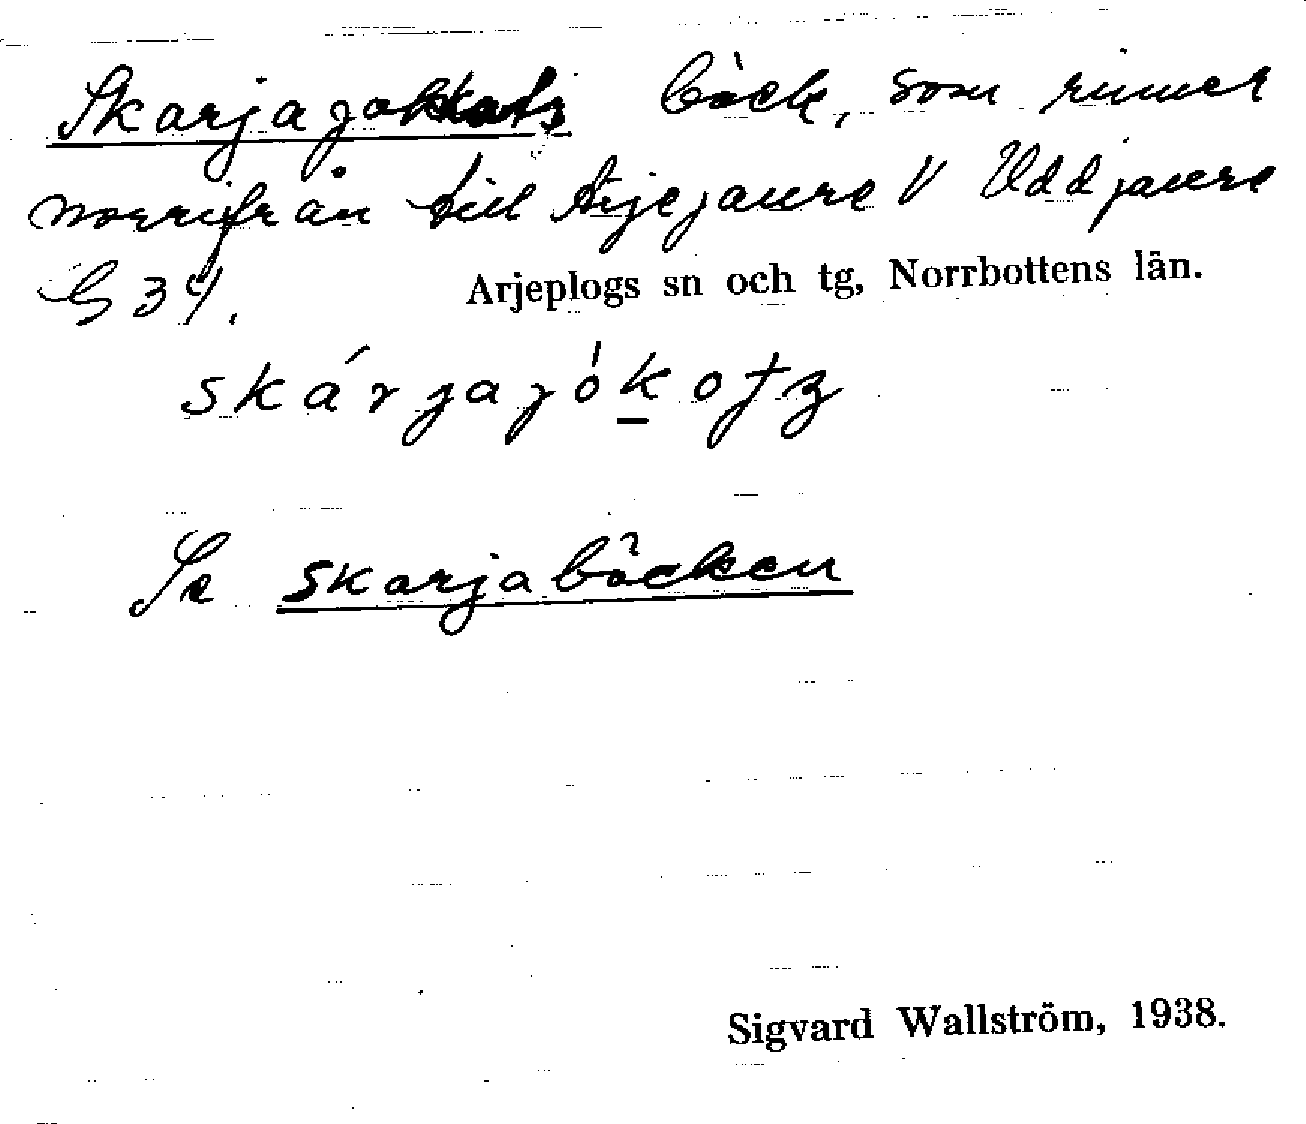 Skarjajokkats bäck, som rinner
norrifrån till Arjejaure V Uddjaure
G 34. Arjeplogs sn och tg, Norrbottens län.
skárjajók̲otz
Se Skarjabäcken
Sigvard Wallström, 1938.